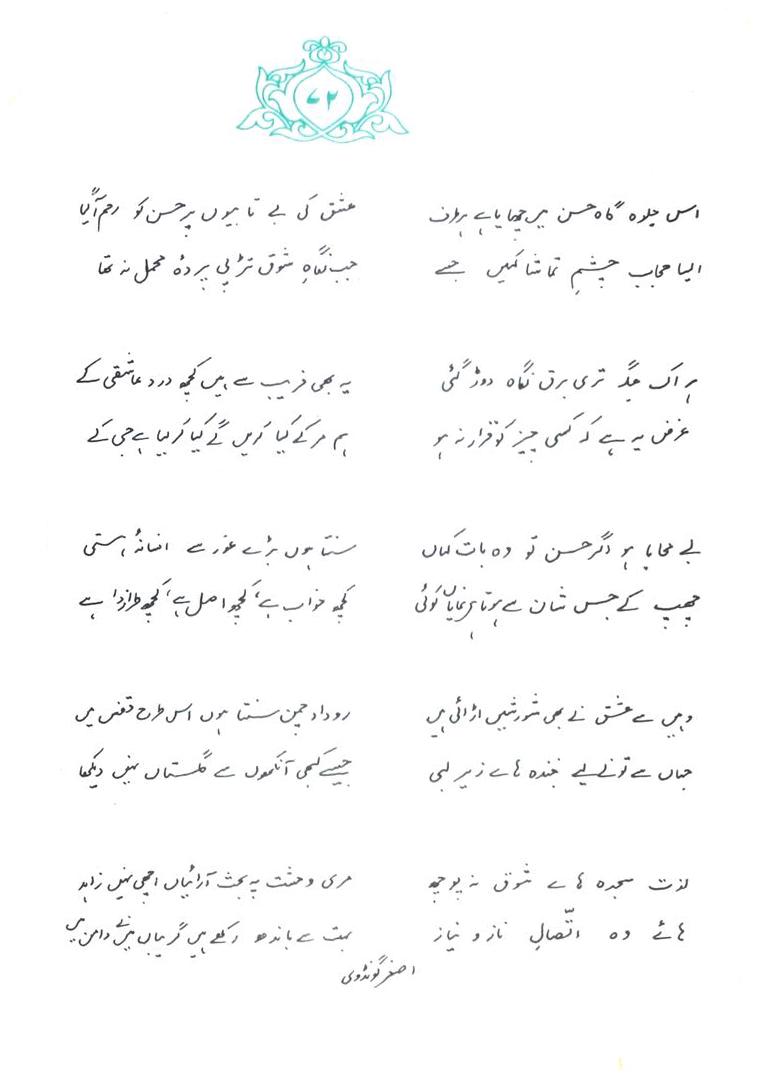 ۷۲
اس جلوہ گاہ حسن میں چھایا ہے ہر طرف
ایسا حجاب چشمِ تماشا کہیں جسے
عشق کی بے تابیوں پر حسن کو رحم آ گیا
جب نگاہِ شوق تڑپی پردۂ محمل نہ تھا
ہر اک جگہ تری برق نگاہ دوڑ گئی
غرض یہ ہے کہ کسی چیز کو قرار نہ ہو
یہ بھی فریب سے ہیں کچھ درد عاشقی کے
ہم مر کے کیا کریں گے کیا کر لیا ہے جی کے
بے محابا ہو اگر حسن تو وہ بات کہاں
چھپ کے جس شان سے ہوتا ہے نمایاں کوئی
سنتا ہوں بڑے غور سے افسانۂ ہستی
کچھ خواب ہے، کچھ اصل ہے، کچھ طرز ادا ہے
وہیں سے عشق نے بھی شورشیں اڑائی ہیں
جہاں سے تو نے لیے خندہ ہاے زیر لبی
روداد چمن سنتا ہوں اس طرح قفس میں
جیسے کبھی آنکھوں سے گلستاں نہیں دیکھا
لذت سجدہ ہاے شوق نہ پوچھ
ہائے وہ اتّصالِ ناز و نیاز
مری وحشت پہ بحث آرائیاں اچھی نہیں زاہد
بہت سے باندھ رکھے ہیں گریباں میں نے دامن میں
اصغر گونڈوی